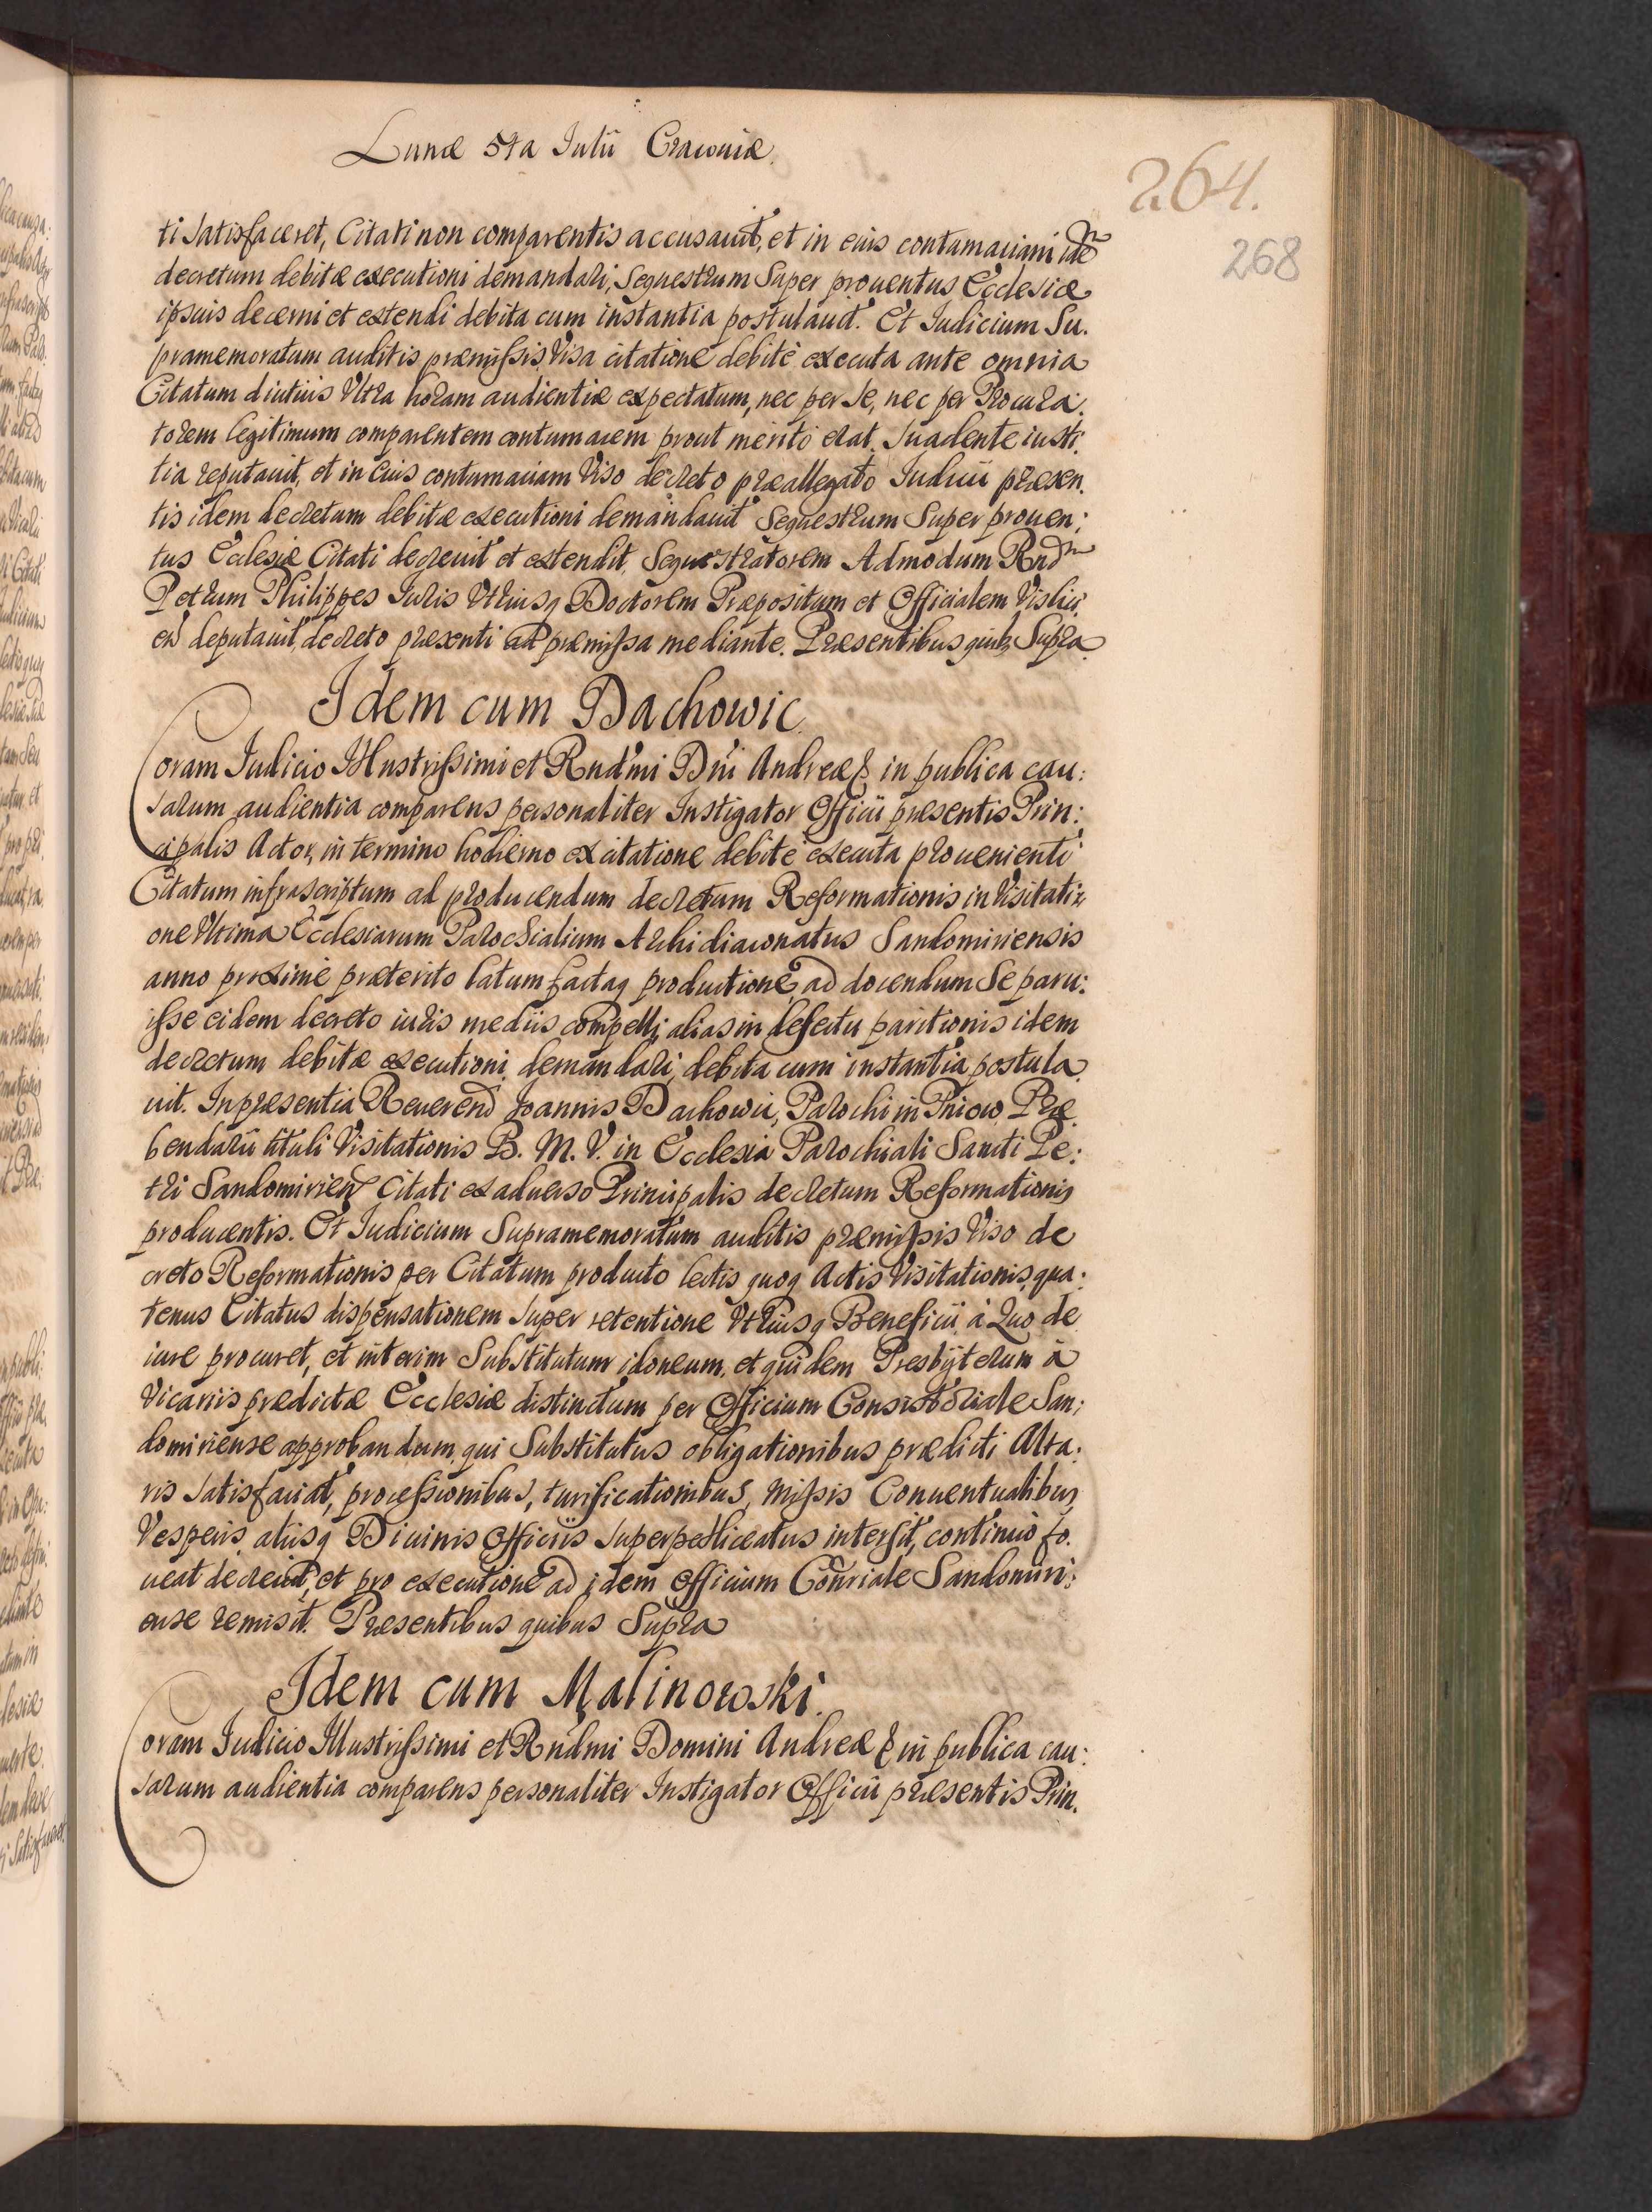 Lunæ 5ta Julii Cracouiæ.
264.
268
ti satisfaceret, Citati non comparentis accusauit, et in eius contumaciam idem
decretum debitæ executioni demandari, Sequestrum Super prouentus Ecclesiæ
ipsuis decerni et extendi debita cum instantia postulauit. Et Iudicium Su.
pramemoratum auditis præmissis, Visa citatione debitè executa ante omnia
Citatum diutius Vltra horam audientiæ expectatum, nec per Se, nec per Procura.
torem legitimum comparentem contumacem prout meritò erat, Suadente iusti.
tia reputauit, et in Eius contumaciam Viso decreto præallegato Iudicii præsen.
tis idem decretum debitæ executioni demandauit Sequestrum Super prouen:
tus Ecclesiæ Citati decreuit et extendit, Sequestratorem Admodum Rndm
Petrum Philippes Iuris Vtriusq Doctorem Præpositum et Officialem Vislici
en deputauit, decreto præsenti ad præmissa mediante. Præsentibus quib, Supra
Idem cum Dachowic.
Coram Iudicio Illustrissimi et Rndmi Dni Andreæ & in publica cau:
sarum audientia comparens personaliter Instigator Officii præsentis Prin:
cipalis Actor, in termino hodierno ex citatione debitè executa proueniente
Citatum infrascriptum ad producendum decretum Reformationis in Visitati:
one Vltima Ecclesiarum Parochialium Archidiaconatus Sandomiriensis
anno proximè præterito latum factaq productione ad docendum Se paru:
isse eidem decreto iuris mediis compelli, alias in defectu paritionis idem
decretum debitæ executioni demandari, debita cum instantia postula.
uit. In præsentia Reuerend Joannis Dachowic, Parochi in Pniow, Præ
bendarii tituli Visitationis B. M. V. in Ecclesia Parochiali Sancti Pe:
tri Sandomirien Citati ex aduerso Principalis decretum Reformationis
producentis. Et Iudicium Supramemoratum auditis præmissis Viso de
creto Reformationis per Citatum producto lectis quoq Actis Visitationis, qua:
tenus Citatus dispensationem super retentione Vtriusq Beneficii à Quo de
iure procuret, et interim Substitutum idoneum, et quidem Presbyterum à
Vicariis prædictæ Ecclesiæ distinctum per Officium Consistoriale San:
domiriense approbandum, qui Substitutus obligationibus prædicti Alta:
ris satisfaciat, processionibus, turificationibus, Missis Conuentualibus
Vesperis, aliisq Diuinis Officiis superpelliceatus intersit, continuò fo.
ueat decreuit, et pro executione ad idem Officium Conriale Sandomiri:
ense remisit. Præsentibus quibus Supra
Idem cum Malinowski.
Coram Iudicio Illustrissimi et Rndmi Domini Andreæ & in publica cau:
sarum audientia comparens personaliter Instigator Officii præsentis Prin.